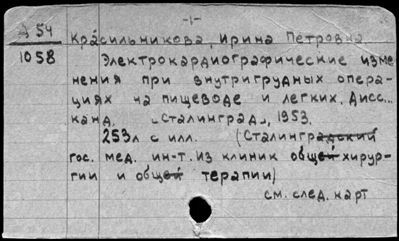 -1-
Д 54
1058
Красильникова, Ирина Петровна
Электрокардиографические изме
нения при внутригрудных опера-
циях на пищеводе и легких. Дисс...
канд. Сталинград, 1953.
253л с илл. (Сталинградский
гос. мед. ин-т. Из клиник общей хирур-
гии и общей терапии)
см. след. карт